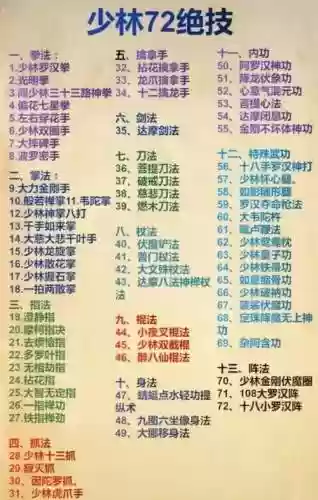 少林72绝技
一、拳法:
1.少林罗汉拳
2.光明拳
3.阎少林三十三路神拳
4.偏花七星拳
5.左右穿花手
6.少林双圈手
7.大摔碑手
8.波罗密手
二、掌法:
9.大力金刚手
10.般若禅掌11.韦陀掌
12.少林神掌八打
13.千手如来掌
14.大慈大悲千叶手
15.少林龙旋掌
16.少林散花掌
17.少林握石掌
18.一拍两散掌
三、指法
19.澄静指
20.摩柯指决
21.去烦恼指
22.多罗叶指
23.无相劫指
24.拈花指
25.大智无定指
26.一指禅功
27.铁指禅劲
四、抓法
28 少林十三抓
29.寂灭抓
30、因陀罗抓、
31、少林虎爪手
五、擒拿手
32、拈花擒拿手
33、龙爪擒拿手
34、十二擒龙手
六、剑法
35、达摩剑法
七、刀法
36、菩提刀法
37、破戒刀法
38、慈悲刀法
39、燃木刀法
八、杖法
40、伏魔铲法
41、普门杖法
42、大文殊杖法
43、达摩八法神禅杖法
九、棍法
44、小夜叉棍法
45、少林双截棍
46、醉八仙棍法
十、身法
47、蜻蜓点水轻功提
纵术
48、九图六坐像身法
49、大挪移身法
十一、内功
50、阿罗汉神功
51、降龙伏象功
52、心意气混元功
53、菩提心法
54、达摩闭息功
55、金刚不坏体神功
十二、特殊武功
56、十八手罗汉神打
57、少林怀心腿、
58、如影随形腿
59、罗汉夺命枪法
60、大韦陀杵
62、少林鸳鸯枕
63、少林童子功
64、少林铁帚功
66、少林破衲功
67、袈裟伏魔功
功
69、杂阿含功
十三、阵法
70、少林金刚伏魔圈
71、108大罗汉阵
72、十八小罗汉阵